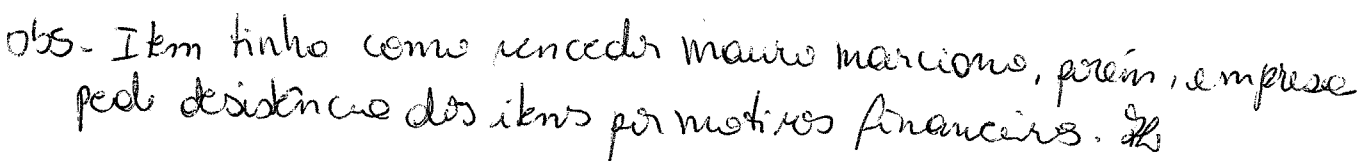 Obs- Item tinha como vencedor mauro marciano, porém, empresa
pede desistência dos itens por motivos financeiros.